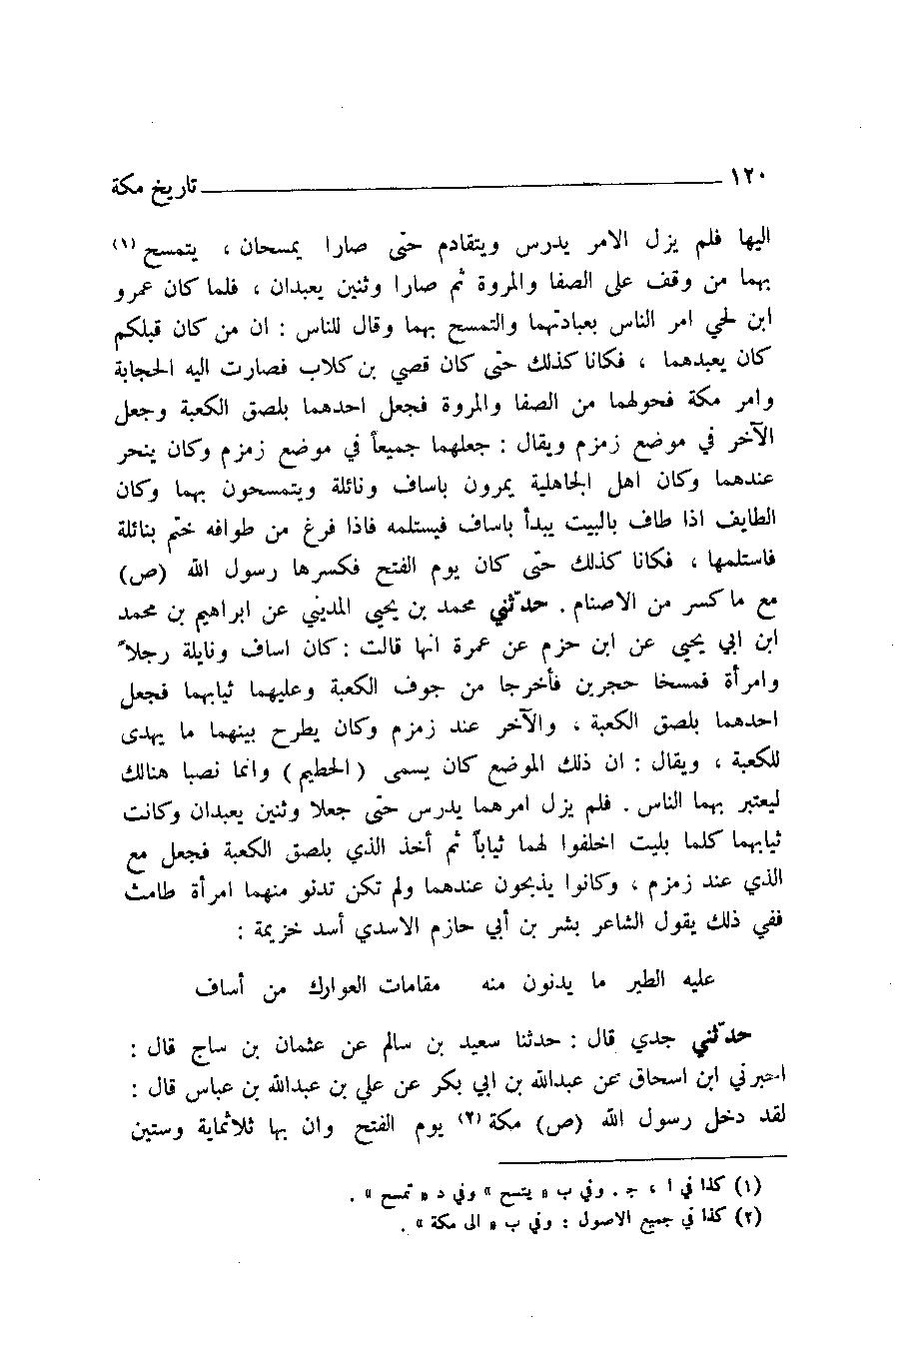 ١٢٠ تاريخ مكة
اليها فلم يزل الامر يدرس ويتقادم حتى صارا يمسحان ، يتمسح (١)
بهما من وقف على الصفا والمروة ثم صارا وثنين يعبدان ، فلما كان عمرو
ابن لحي امر الناس بعبادتهما والتمسح بهما وقال للناس : ان من كان قبلكم
كان يعبدهما ، فكانا كذلك حتى كان قصي بن كلاب فصارت اليه الحجابة
وامر مكة فحولهما من الصفا والمروة فجعل احدهما بلصق الكعبة وجعل
الآخر في موضع زمزم ويقال : جعلهما جميعاً في موضع زمزم وكان ينحر
عندهما وكان اهل الجاهلية يمرون باساف ونائلة ويتمسحون بهما وكان
الطايف اذا طاف بالبيت يبدأ باساف فيستلمه فاذا فرغ من طوافه ختم بنائلة
فاستلمها ، فكانا كذلك حتى كان يوم الفتح فكسرها رسول الله (ص)
مع ما كسر من الاصنام . حدّثني محمد بن يحيي المديني عن ابراهيم بن محمد
ابن ابي يحيى عن ابن حزم عن عمرة انها قالت : كان اساف ونايلة رجلاً
وامرأة فمسخا حجرين فأخرجا من جوف الكعبة وعليهما ثيابهما فجعل
احدهما بلصق الكعبة ، والآخر عند زمزم وكان يطرح بينهما ما يهدى
للكعبة ، ويقال : ان ذلك الموضع كان يسمى ( الحطيم ) وانما نصبا هنالك
ليعتبر بهما الناس . فلم يزل امرهما يدرس حتى جعلا وثنين يعبدان وكانت
ثيابهما كلما بليت اخلفوا لهما ثياباً ثم أخذ الذي بلصق الكعبة فجعل مع
الذي عند زمزم ، وكانوا يذبحون عندهما ولم تكن تدنو منهما امرأة طامث
ففي ذلك يقول الشاعر بشر بن أبي حازم الاسدي أسد خزيمة :
عليه الطير ما يدنون منه مقامات العوارك من أساف
حدّثني جدي قال : حدثنا سعيد بن سالم عن عثمان بن ساج قال :
اخبرني ابن اسحاق عن عبدالله بن ابي بكر عن علي بن عبدالله بن عباس قال :
لقد دخل رسول الله (ص) مكة (٢) يوم الفتح وان بها ثلاثماية وستين
(١) كذا في ا ، ج . وفي ب « يتسح » وفي د « تمسح » .
(٢) كذا في جميع الاصول : وفي ب « الى مكة » .